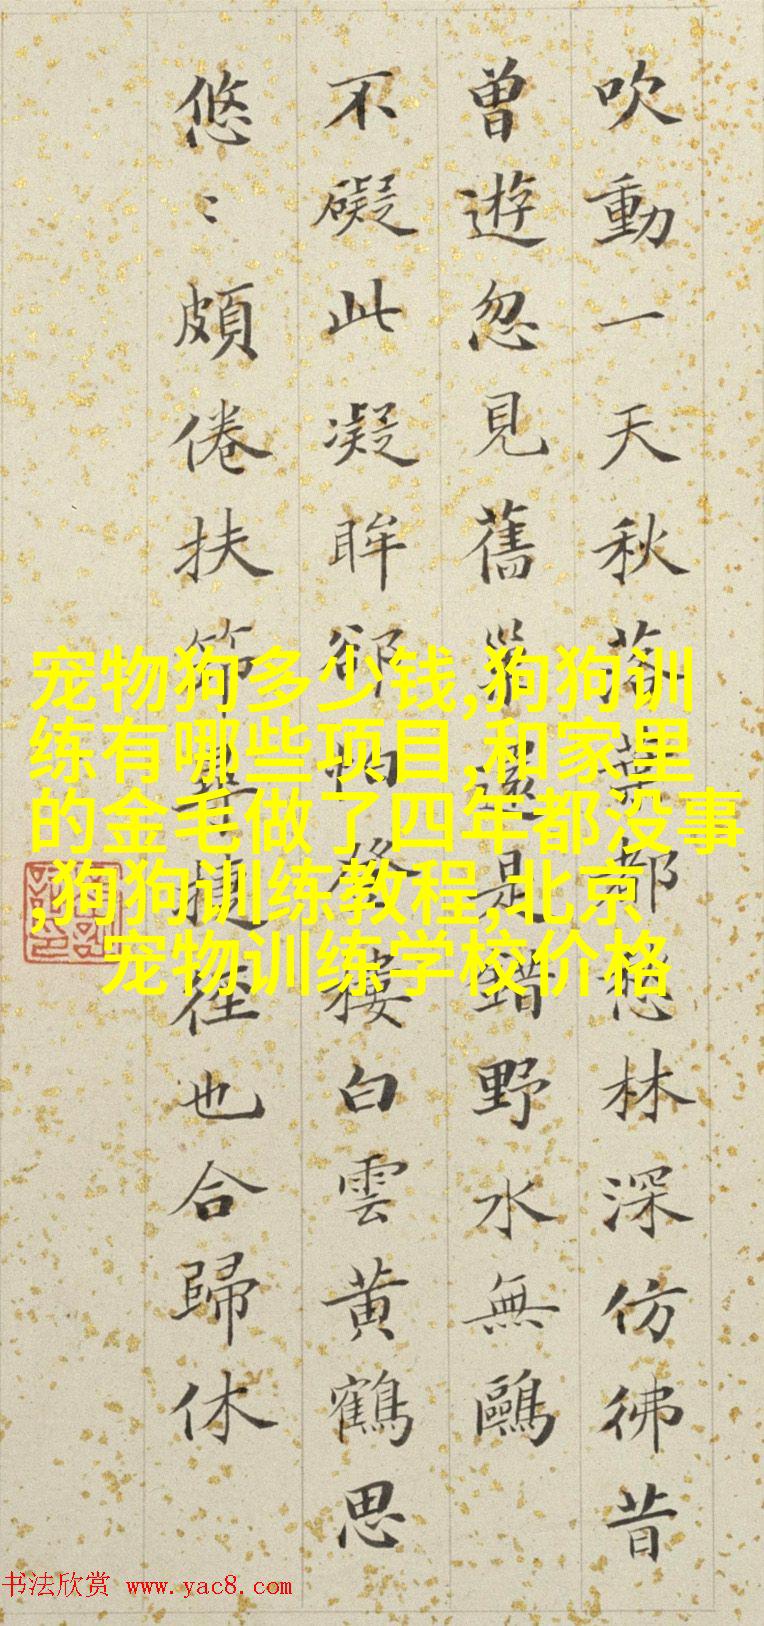 吹動一天秋落葉都愁林深仿彿昔
曾遊忽見舊巢還是錯野水無鷗
不礙此凝眸卻怕登樓白雲黃鶴思
悠〻頗倦扶筇尋捷徑也合歸休
宠物狗多少钱,狗狗训
练有哪些项目,和家里
的金毛做了四年都没事
,狗狗训练教程,北京
宠物训练学校价格
书法欣赏 www.yac8.com